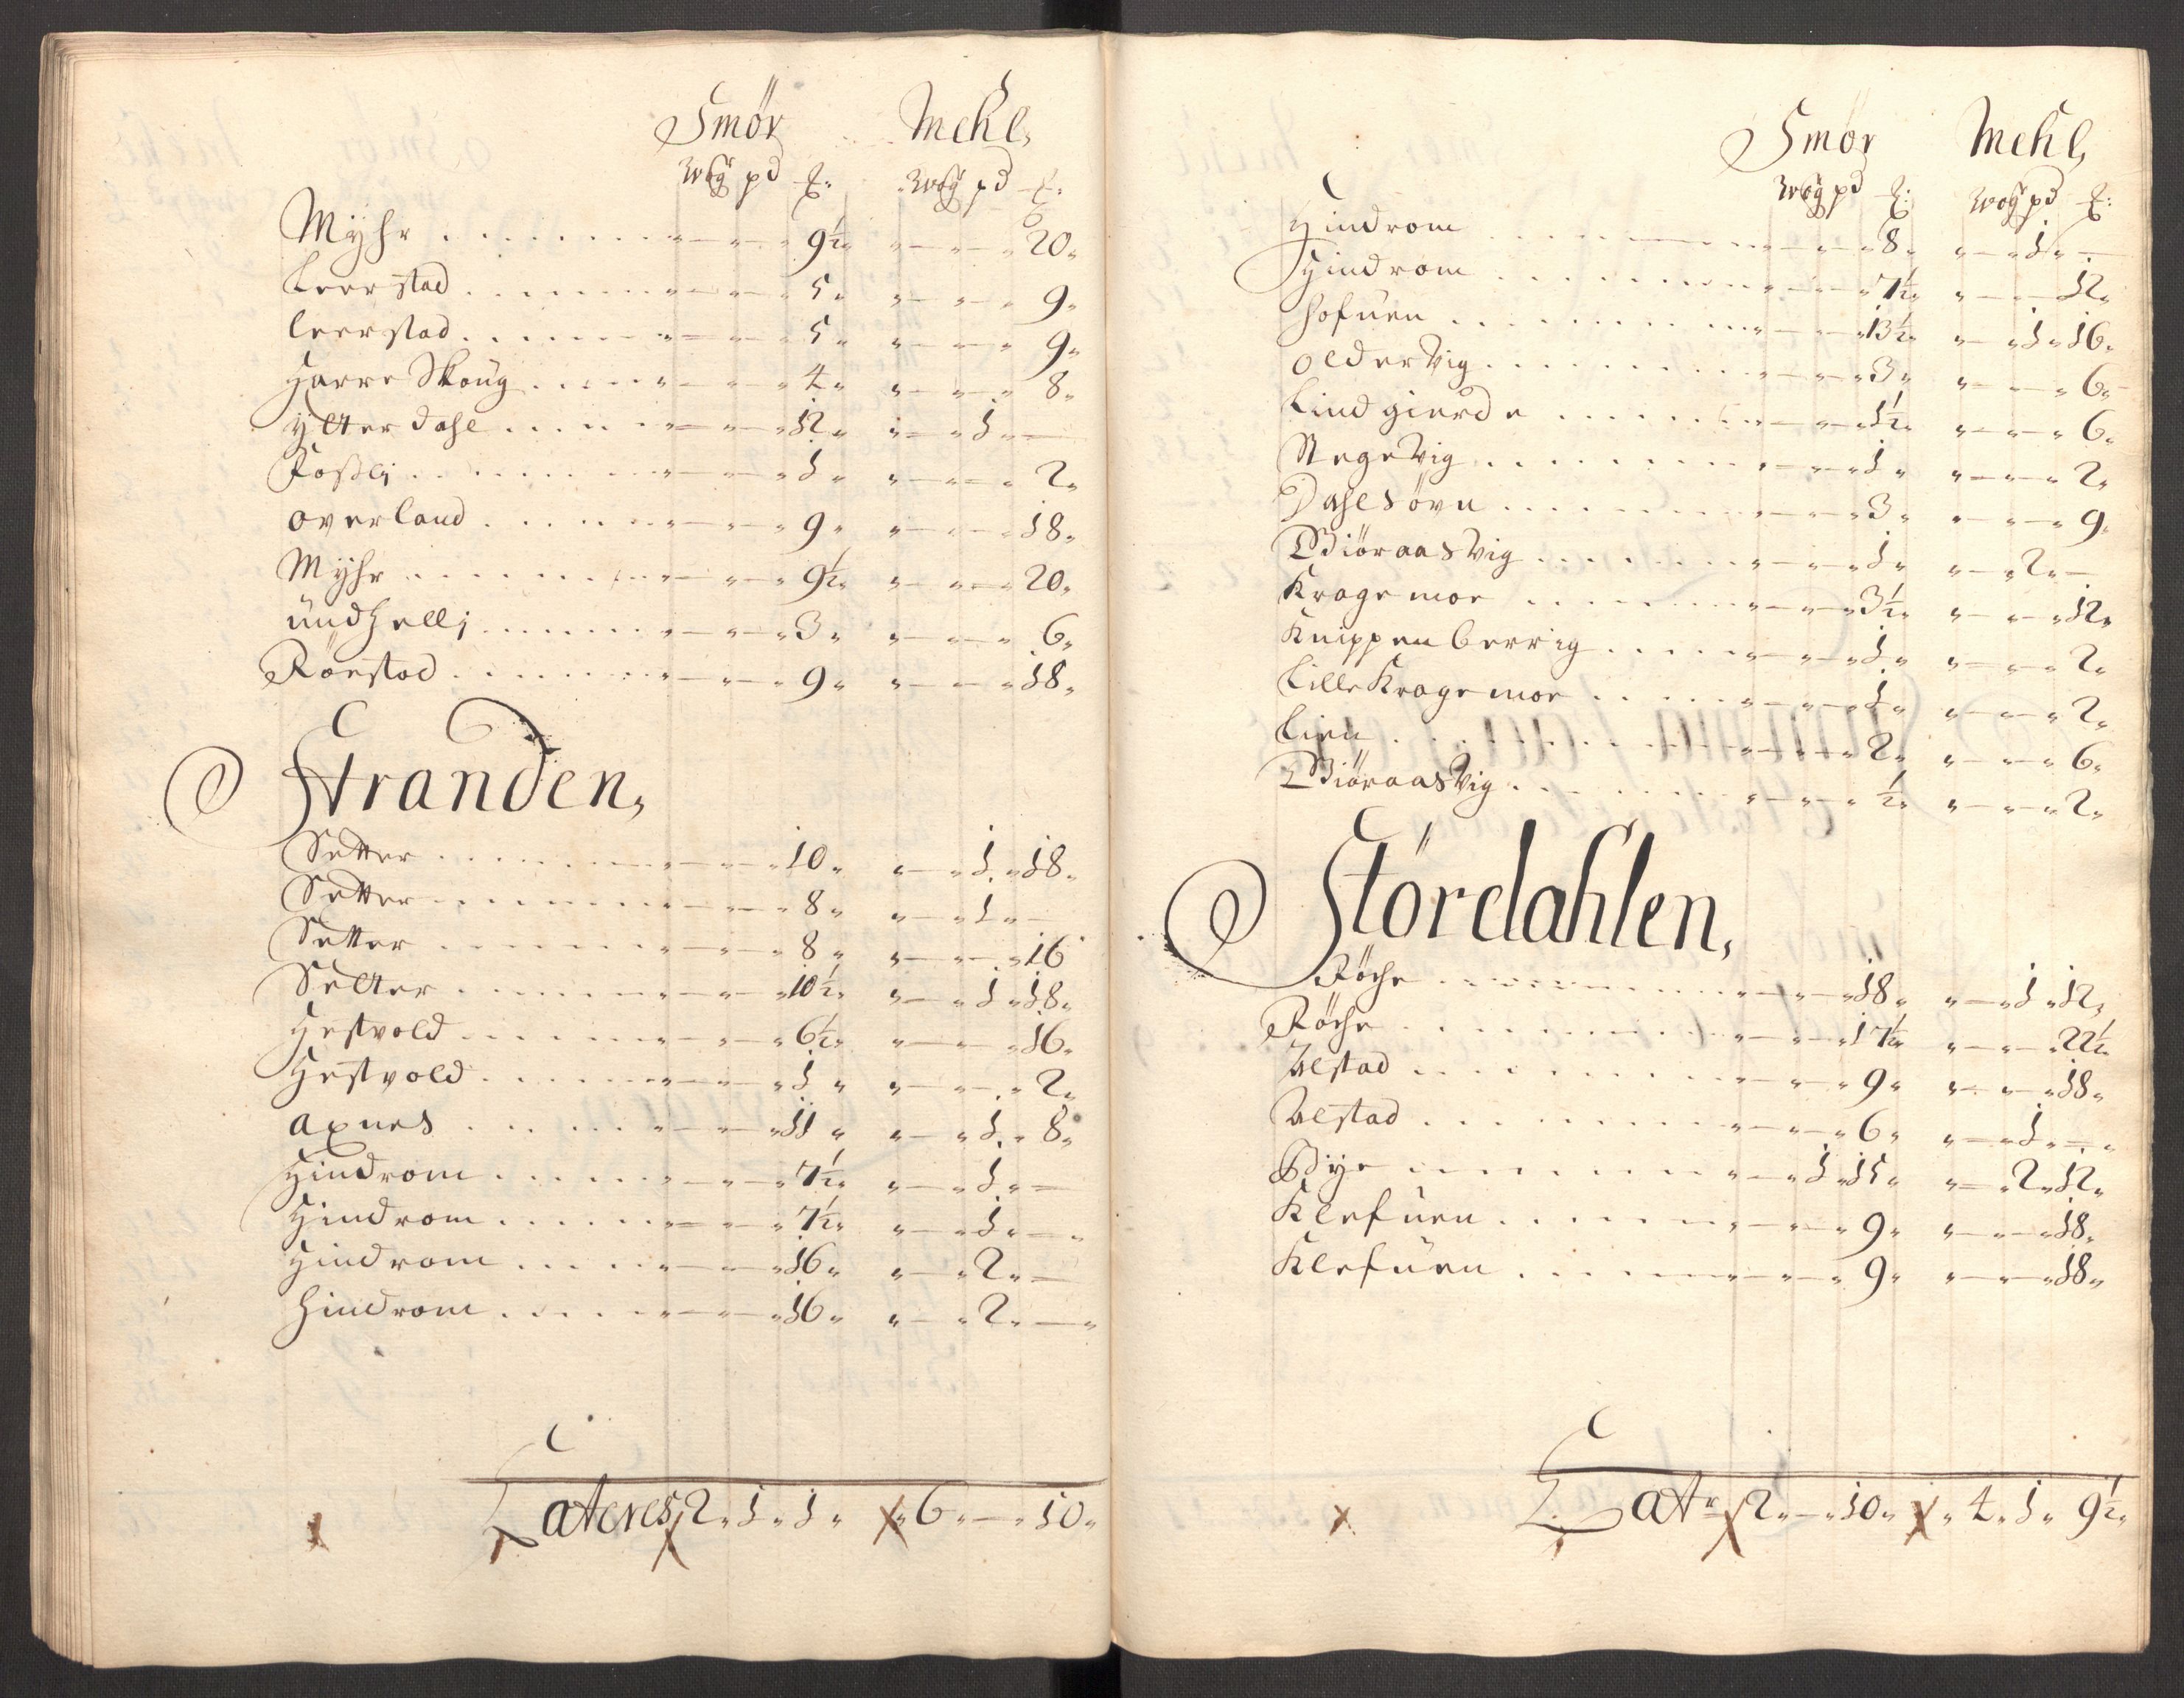 Smör Mehl,
wog pd ℔: wog pd ℔:
Mÿhr . . . . . . . . „ — „ — „ 9½„ „ — „ — „ 20„
Leerstad . . . . . . . „ — „ — „ 5„ „ — „ — „ 9„
Leerstad . . . . . . . „ — „ — „ 5„ „ — „ — „ 9„
Harre Skoug . . . . „ — „ — „ 4„ „ — „ — „ 8„
ÿtterdahl . . . . . „ — „ — „ 12„ „ — „ 1„ —
Fosslj . . . . . . . „ — „ — „ 1„ „ — „ — „ 2„
overland . . . . . . „ — „ — „ 9„ „ — „ — „ 18„
Mÿhr . . . . . . . . „ — „ — „ 9½„ „ — „ — „ 20„
undhellj . . . . . . „ — „ — „ 3„ „ — „ — „ 6„
Röestad . . . . . . . „ — „ — „ 9„ „ — „ — „ 18„
Stranden,
Setter . . . . . . . „ — „ — „ 10„ „ — „ 1„ 18„
Setter . . . . . . . „ — „ — „ 8„ „ — „ 1„ —
Setter . . . . . . . „ — „ — „ 8„ „ — „ — „ 16
Setter . . . . . . . „ — „ — „ 10½„ „ — „ 1„ 18„
Hestvold . . . . . . „ — „ — „ 6½„ „ — „ — „ 16„
Hestvold . . . . . . „ — „ — „ 1„ „ — „ — „ 2„
axnes . . . . . . „ — „ — „ 11„ „ — „ 1„ 8„
Hindrom . . . . . . „ — „ — „ 7½„ „ — „ 1„ —
Hindrom . . . . . . „ — „ — „ 7½„ „ — „ 1„ — „
Hindrom . . . . . . „ — „ — „ 16„ „ — „ 2„ —
Hindrom . . . . . . „ — „ — „ 16„ „ — „ 2„ — „
Lateres 2„ 1„ 1„ „ 6„ — „ 10„
Smör Mehl,
wog pd ℔: wog pd ℔:
Hindrom . . . . . . „ — „ — „ 8„ „ — „ 1„ —
Hindrom . . . . . . „ — „ — „ 7½„ „ — „ — 12„
Hofuen . . . . . . . „ — „ — „ 13½„ „ — „ 1„ 16„
oldervig . . . . . . „ — „ — „ 3„ „ — „ — „ 6„
Lindgierde . . . . . „ — „ — „ 1½„ „ — „ — „ 6„
Stegevig . . . . . . „ — „ — „ 1„ „ — „ — „ 2„
Dahlsövn . . . . . . „ — „ — „ 3„ „ — „ — „ 9„
Biöraasvig . . . . . „ — „ — „ 1„ „ — „ 2„ —
Kragemoe . . . . . . „ — „ — „ 3½„ „ — „ — „ 12„
Knippenberrig . . . . „ — „ — „ 1„ „ — „ — „ 2„
Lille Kragemoe . . . „ — „ — „ 1„ „ — „ — „ 2„
Lien . . . . . . . . „ — „ — „ 2„ „ — „ — „ 6„
Biöraasvig . . . . . „ — „ — „ ½„ „ — „ — „ 2„
Stördahlen,
Röche . . . . . . . „ — „ — „ 18„ „ — „ 1„ 12„
Röche . . . . . . . „ — „ — „ 17½„ „ — „ — „ 22½„
Alstad . . . . . . . „ — „ — „ 9„ „ — „ — „ 18„
Alstad . . . . . . . „ — „ — „ 6„ „ — „ 1„ — „
Bÿe . . . . . . . . „ — „ 1„ 15„ „ — „ 2„ 12„
Klefuen . . . . . . „ — „ — „ 9„ „ — „ — „ 18„
Klefuen . . . . . . „ — „ — „ 9„ „ — „ — „ 18„
Latr 2„ — „ 10„ „ 4„ 1„ 9½„